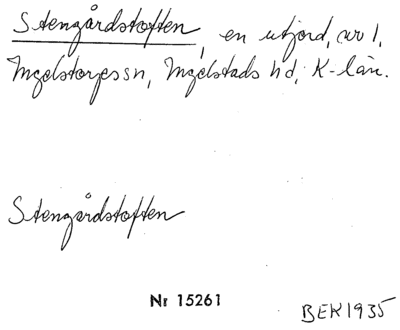 Stengårdstoften, en utjord, av 1,
Ingelstorps sn, Ingelstads hd, K-län.
Stengårdstoften
Nr 15261
BEK1935